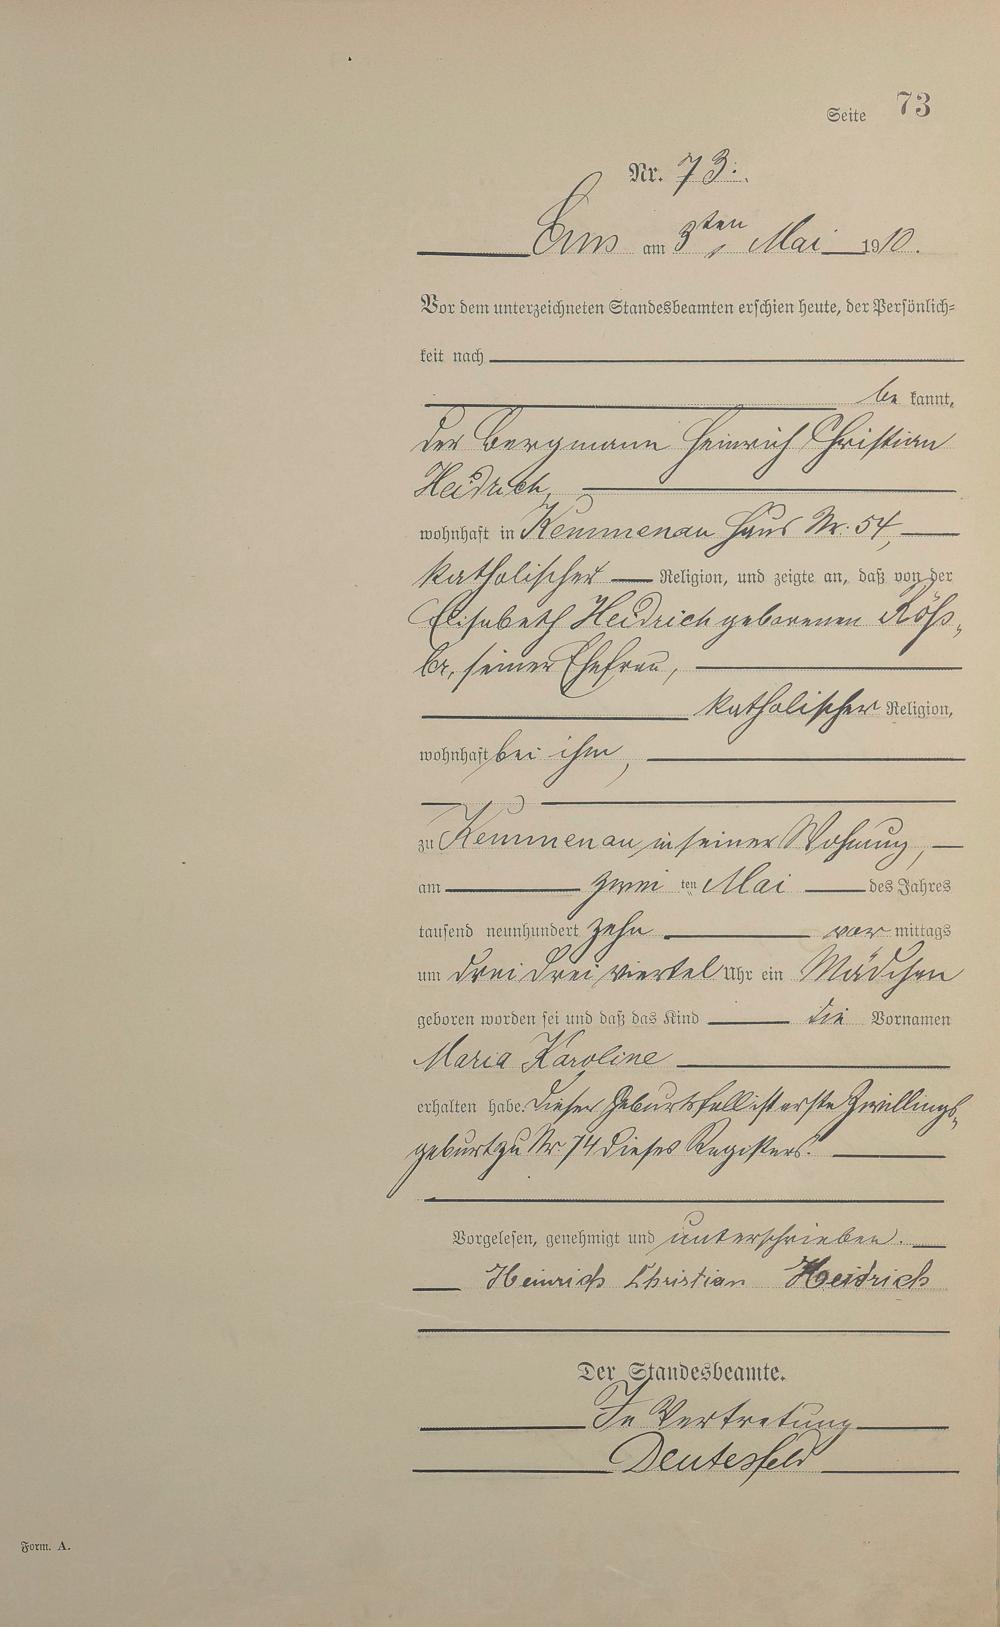 Seite 73
Nr. 73.
Ems am 3ten Mai 1910.
Vor dem unterzeichneten Standesbeamten erschien heute, der Persönlich-
keit nach
be kannt,
der Bergmann Heinrich Christian
Heidrich,
wohnhaft in Kemmenau Haus Nr. 54,
katholischer Religion, und zeigte an, daß von der
Elisabeth Heidrich geborenen Röß-
ler, seiner Ehefrau,
katholischer Religion,
wohnhaft bei ihm,
zu Kemmenau in seiner Wohnung,
am zwei ten Mai des Jahres
tausend neunhundert zehn vor mittags
um drei drei viertel Uhr ein Mädchen
geboren worden sei und daß das Kind die Vornamen
Maria Karoline
erhalten habe. Dieser Geburtsfall ist erste Zwillings-
geburt zu Nr. 74 dieses Registers.
Vorgelesen, genehmigt und unterschrieben.
Heinrich Christian Heidrich
Der Standesbeamte.
In Vertretung
Deutesfeld
Form. A.